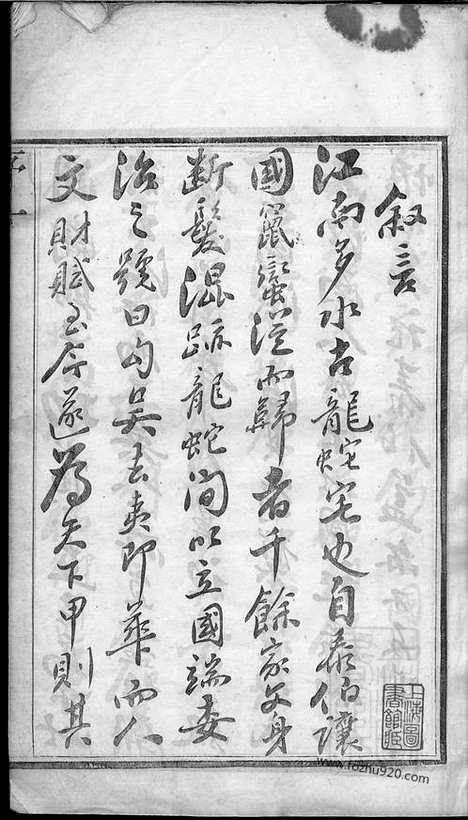 叙言
江南多水古龍蛇宅也自泰伯讓
國竄蠻從而歸者千餘家文身
斷髮混跡龍蛇間以立國端委
治之號曰勾吳去夷即華而人
文財賦至今遂為天下甲則其
上海圖書館藏
www.fozhu920.com